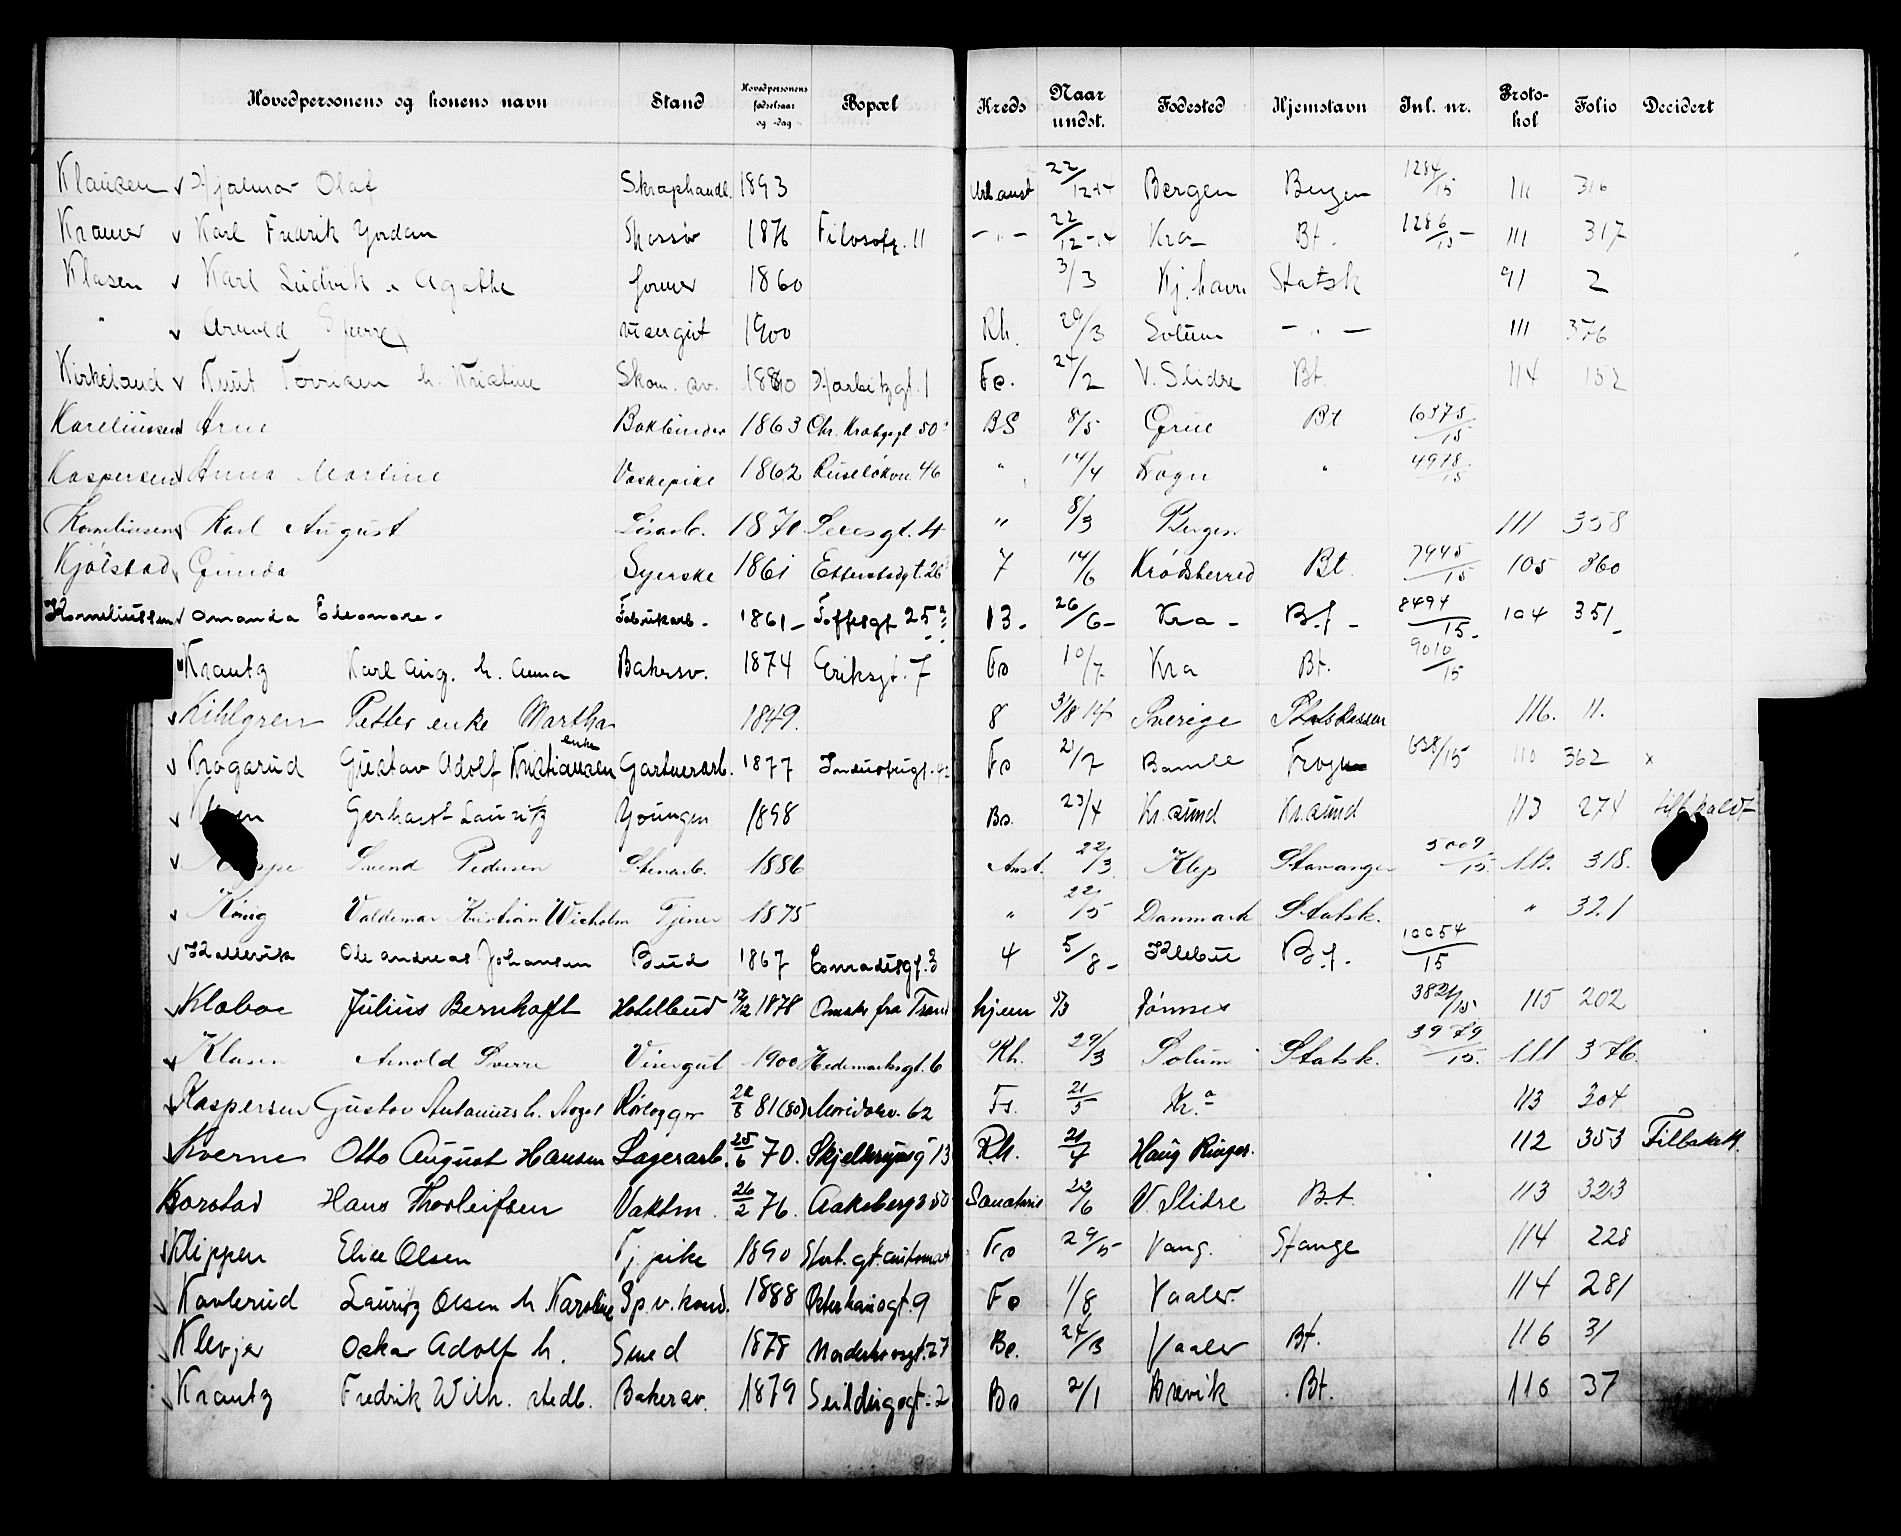 Hovedpersonens og konens navn Stand Hovedpersonens fødselsaar og -dag Bopæl Kreds Naar undst. Fødested Hjemstavn Inl. nr. Protokol Folio Decidert
Klausen Hjalmar Olaf Skraphandl. 1893 22/12-14 Bergen Bergen 1284/15 111 316
Kramer Karl Fredrik Jordan Skossv 1876 Filosofg. 11 -"- 22/12-14 Kra Bt. 1286/15 111 317
Klasen Karl Ludvik Agathe former 1860 3/3 Kj.havn Statsk 91 2
" Arnold Sverre visergut 1900 Rh. 29/3 Solum -"- 111 376
Kirkeland Knut Torrisen h. Kristine Skom. sv. 1880 Harbitzgt. 1 Fo. 24/2 V. Slidre Bt. 114 152
Kareliussen Arne Bokbinder 1863 Chr. Krohgsgt 50 BS 8/5 Grue Bt 6375/15
Kaspersen Anna Martine Vaskepike 1862 Ruseløkvn. 46 " 14/4 Fogn " 4978/15
Korneliussen Karl August Løsarb. 1870 gt. 4 " 8/3 Bergen 111 358
Kjølstad Gunda Syerske 1861 Etterstadgt. 26 7 14/6 Krødsherred Bt. 7945/15 105 860
Korneliussen Amanda Eleonore Fabrikarb. 1861 Toftesgt 25 13. 26/6 Kra Bt 8494/15 104 351
Krantz Karl Aug. h. Anna Bakersv. 1874 Eriksgt. 7 Fo 10/7 Kra Bt. 9010/15
Kihlgren Petter enke Martha 1849. 8 31/8 14 Sverige Statskassen 116. 11.
Krogsrud Gustav Adolf Kristiansen enke Gartnerarb. 1877 Industrigt. 42 Fo 21/7 Bamle Frogn 638/15 110 362 x
Gerhard Lauritz Youngen 1898 Bo. 23/4 Kr.sund Kr.sund 113 274 tilbakaldt
Svend Pedersen Stenarb. 1886 Anst. 22/3 Klep Stavanger 5009/15 112. 318.
König Valdemar Kristian Wicholm Tjener 1875 " 22/5 Danmark Statsk. " 321
Kallevik Ole Andreas Johansen Bud 1867 Conradisgt. 3 4 5/8 Klebu Bt. 10054/15
Klaboe Julius Bernhoft Hotelbud 12/12 1878 Omstr. fra hjem 5/3 Tønnes 3821/15 115 202
Klasen Arnold Sverre Visergut 1900 Hedemarksgt. 6 Rh. 29/3 Solum Statsk. 3979/15. 111 376.
Kaspersen Gustav Antonius h. Rørlegger 81 (80) Maridalsv. 62 Fs. 21/5 Kr.a 113 304
Kverne Otto August Hansen Lagerarb. 25/6 70. Skjeltrupsg 13 Rh. 21/4 Haug Ringer. 112 353 Tilbakek.
Korstad Hans Thorleifsen Vaktm. 26/2 76. Aakebergv 50 Sanatorie 22/6 V. Slidre Bt. 113 323
Klippen Elise Olsen Tj. pike 1890 Stort. gt. automat Fo 29/5 Vang. Stange 114 228
Kavlerud Lauritz Olsen h Karoline Sp.v. kond. 1888 Østerhausgt. 9 Fo 1/8 Vaaler. 114 281
Klevjer Oskar Adolf h. Smed 1878 Norderhovsgt. 27 Bo. 24/3 Vaaler Bt. 116 31
Krantz Fredrik Wilh. stedb. Bakersv. 1879 Seilduksgt. 2 Bo 2/1 Brevik Bt. 116 37